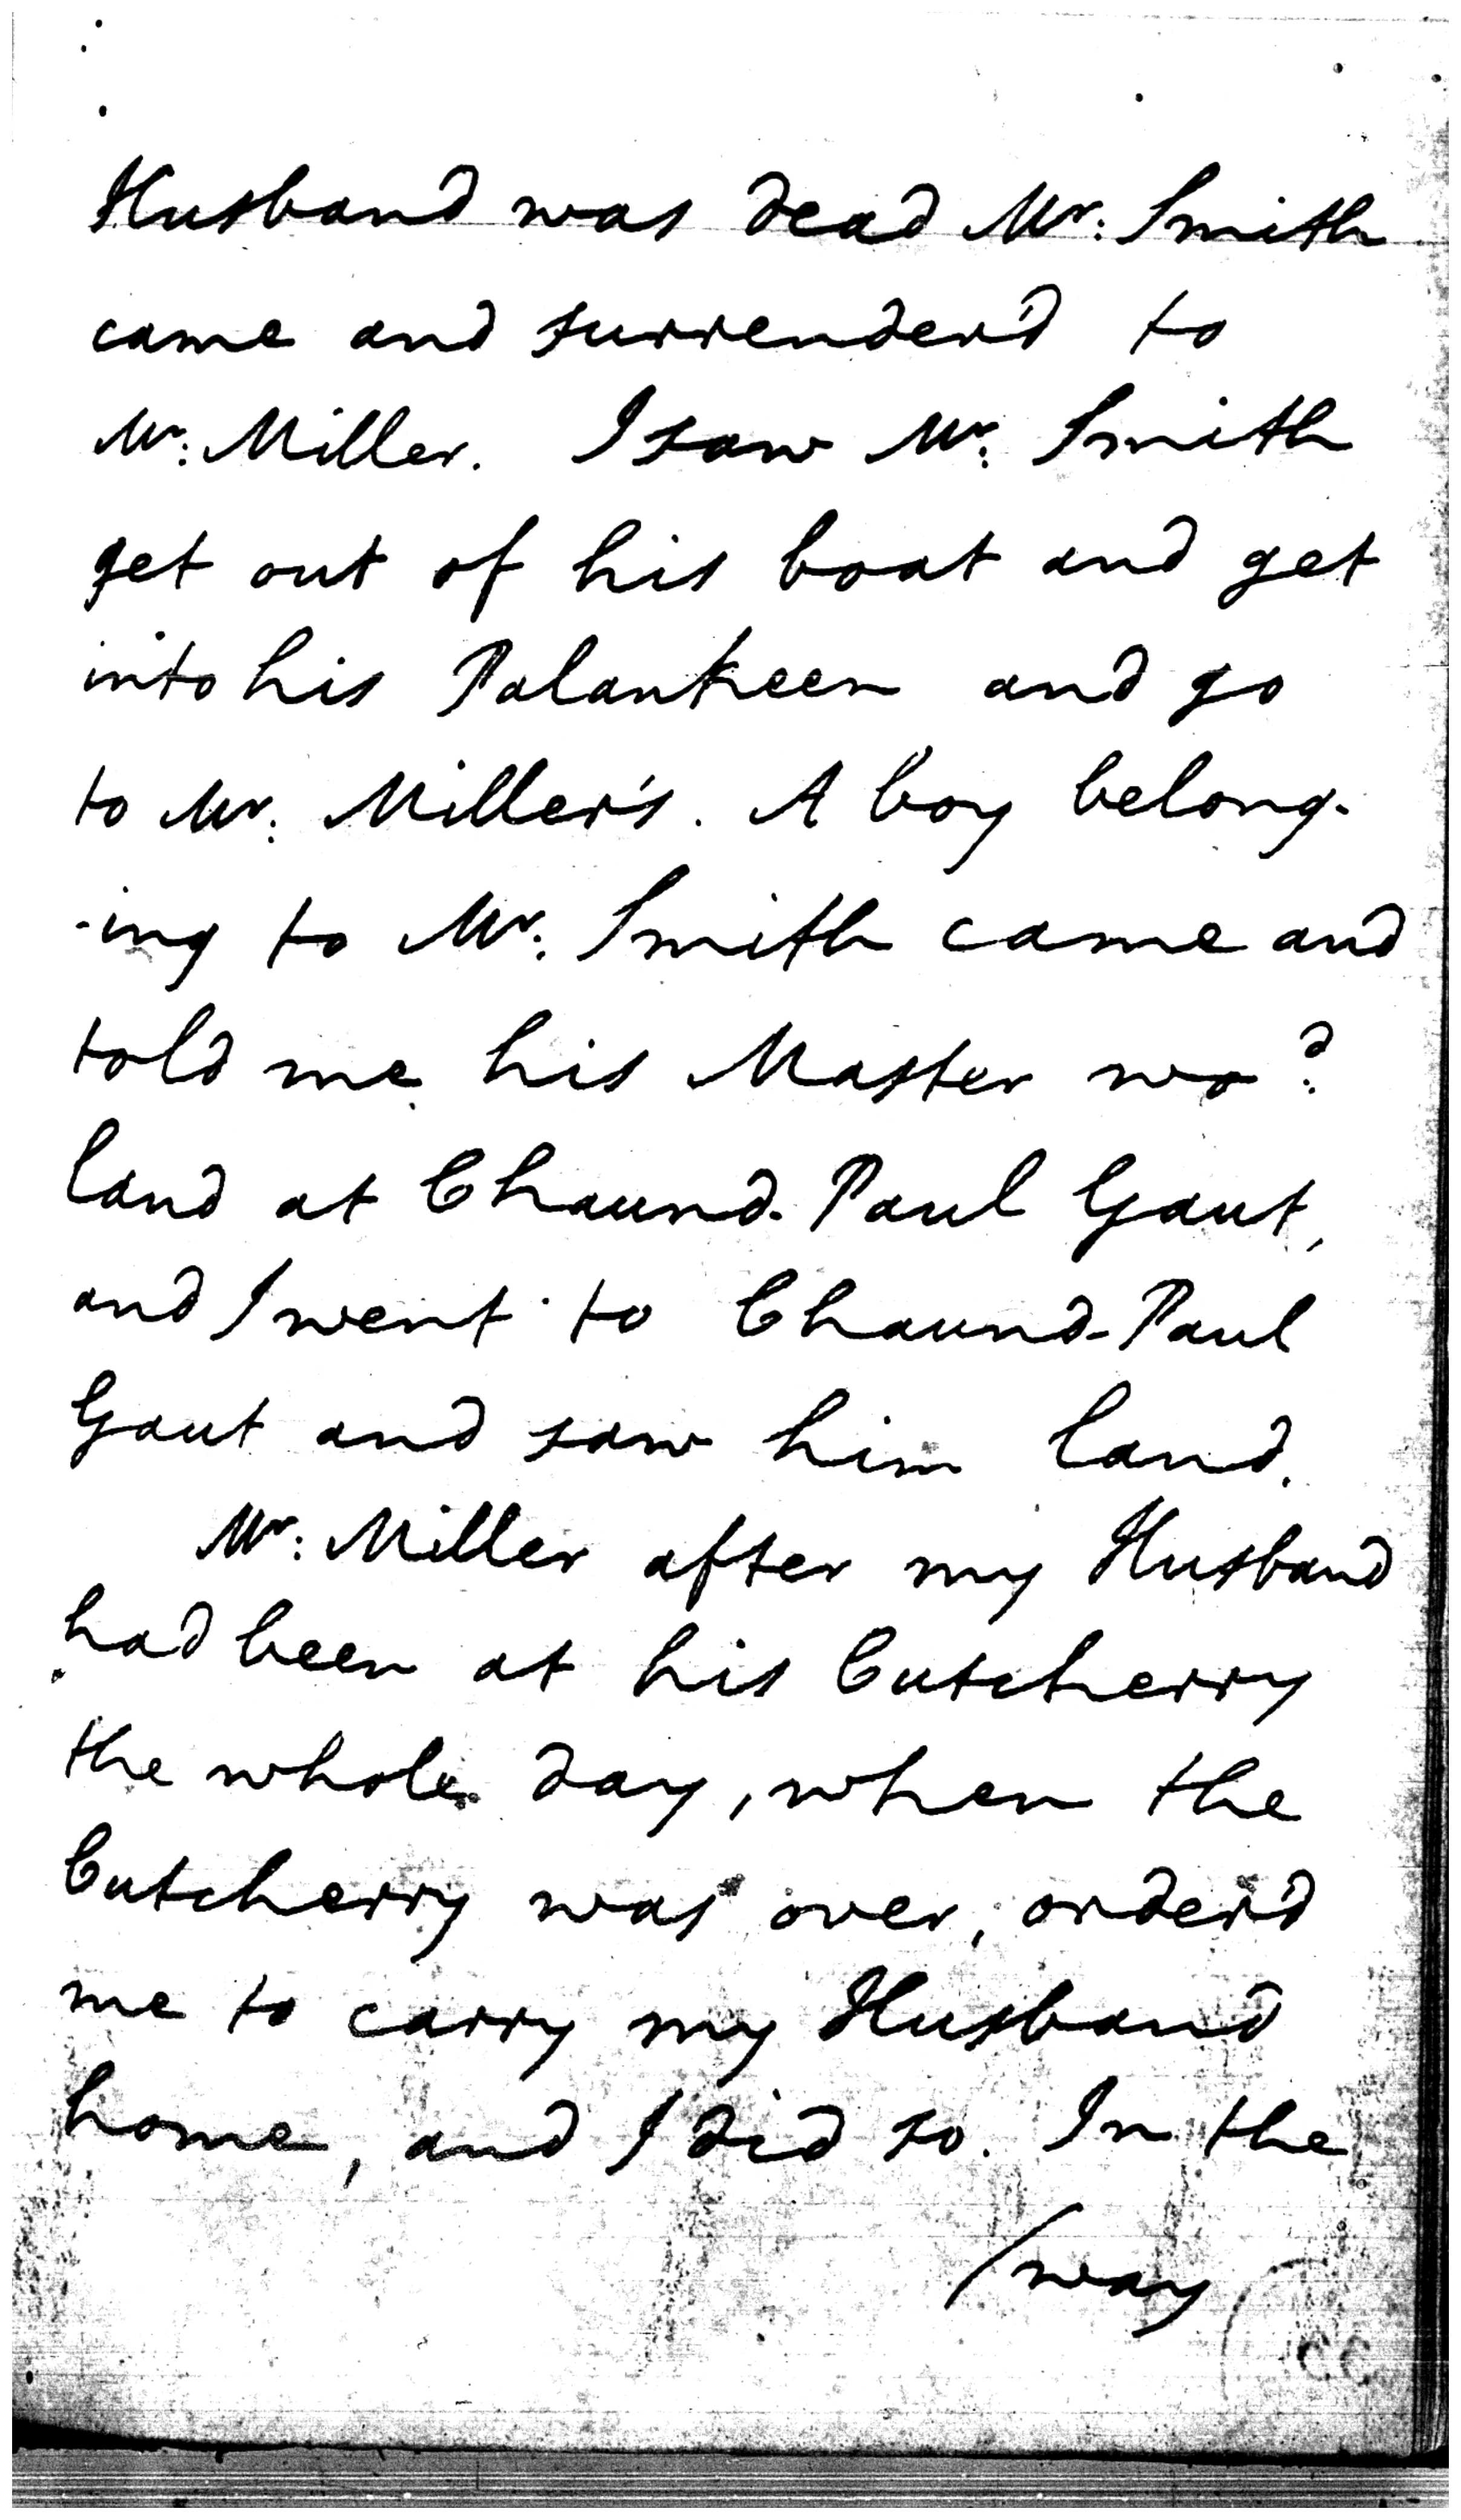 Husband was dead Mr: Smith
came and surrender'd to
Mr: Miller. I saw Mr: Smith
get out of his boat and get
into his Palankeen and go
to Mr: Miller's. A boy belong-
-ing to Mr: Smith came and
told me his Master wod:
land at Chaund-Paul Gaut,
and I went to Chaund-Paul
Gaut and saw him land.
Mr: Miller after my Husband
had been at his Cutcherry
the whole day, when the
Cutcherry was over, order'd
me to carry my Husband
home, and I did so. In the
/way